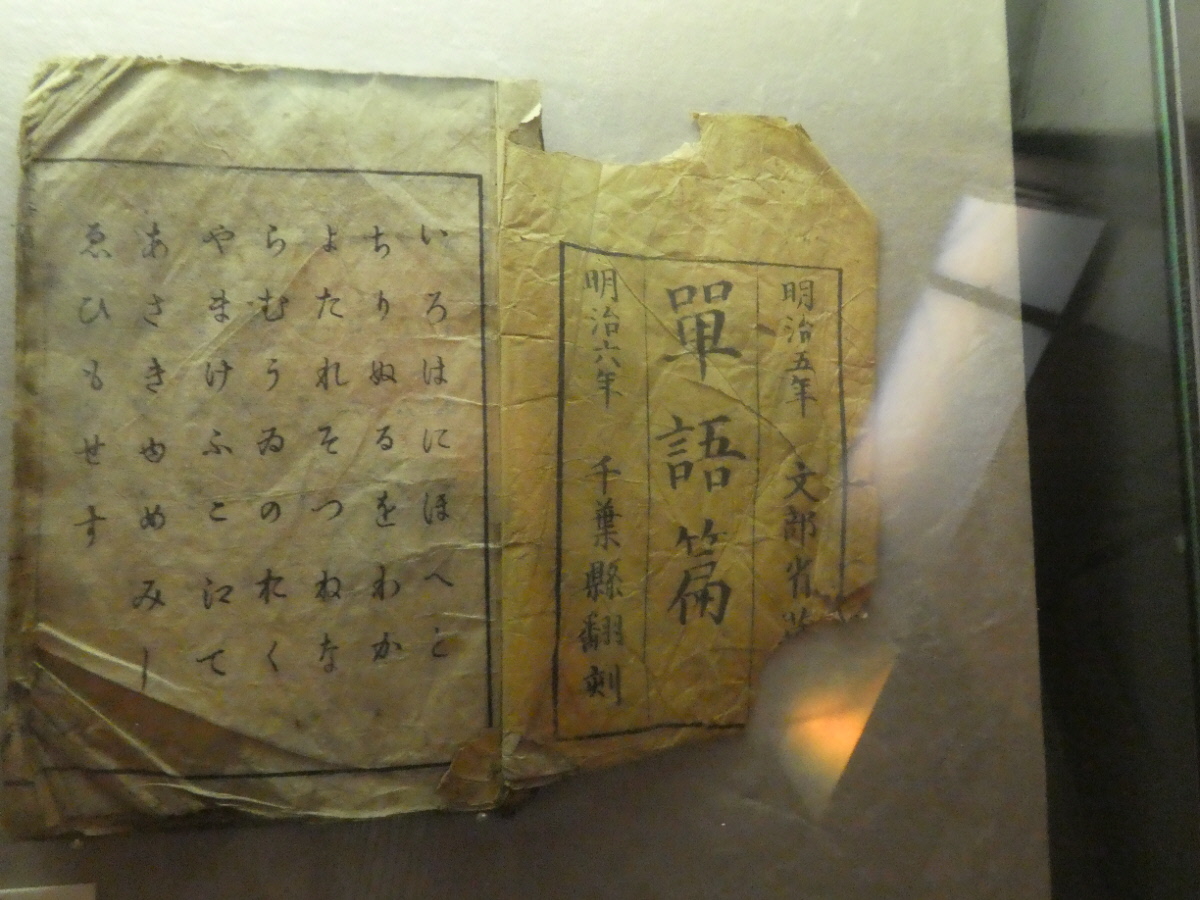 明治五年 文部省
單語篇
明治六年 千葉縣翻刻
いろはにほへと
ちりぬるをわか
よたれそつねな
らむうゐのおく
やまけふこ江て
あさきゆめみし
ゑひもせす